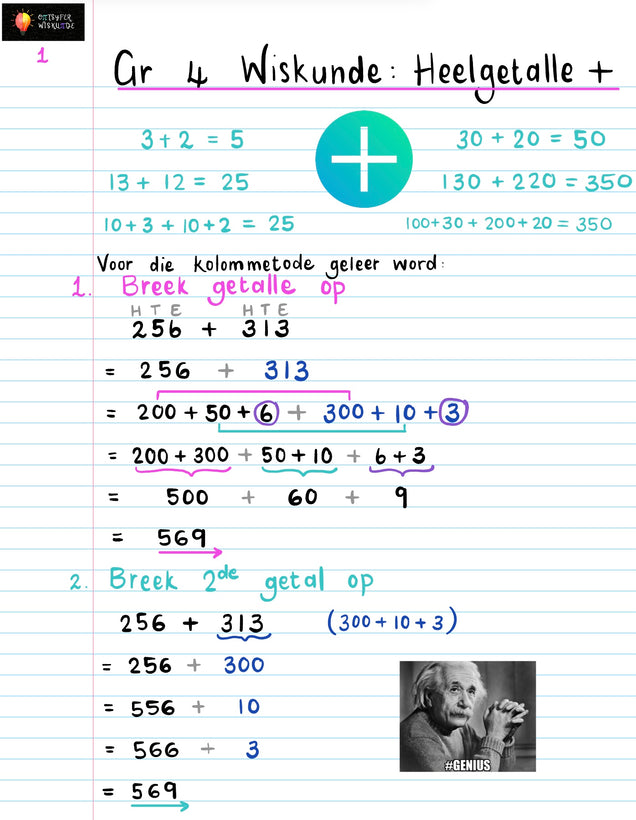 ONTSYFER
WISKUNDE
1
Gr 4 Wiskunde: Heelgetalle +
3 + 2 = 5
30 + 20 = 50
13 + 12 = 25
130 + 220 = 350
10 + 3 + 10 + 2 = 25
100 + 30 + 200 + 20 = 350
Voor die kolommetode geleer word:
1. Breek getalle op
H T E H T E
256 + 313
= 256 + 313
= 200 + 50 + 6 + 300 + 10 + 3
= 200 + 300 + 50 + 10 + 6 + 3
= 500 + 60 + 9
= 569
2. Breek 2de getal op
256 + 313 (300 + 10 + 3)
= 256 + 300
= 556 + 10
= 566 + 3
#GENIUS
= 569